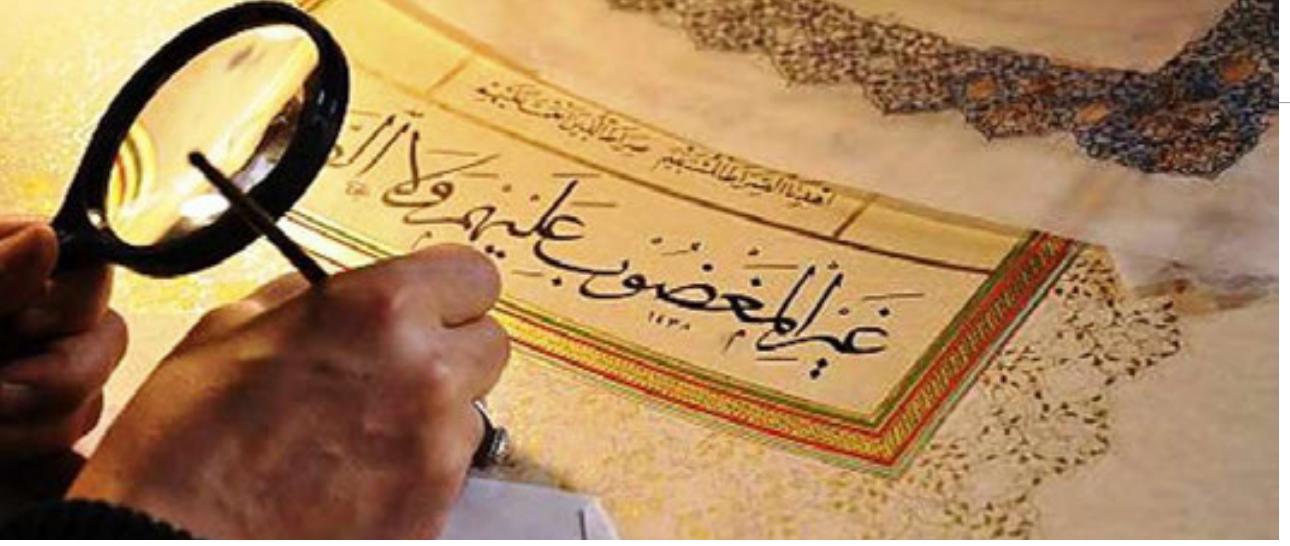 اهدنا الصراط المستقيم صراط الذين انعمت عليهم
غَيْرِ الْمَغْضُوبِ عَلَيْهِمْ وَلَا
١٤٣٨